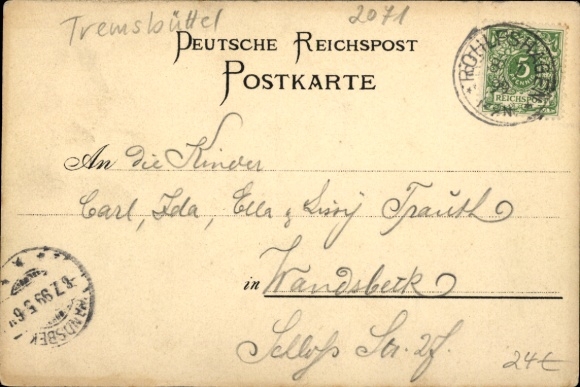 Tremsbüttel
2071
DEUTSCHE REICHSPOST
POSTKARTE
5
REICHSPOST
An die Kinder
Carl, Ida, Ella & Lissy Trauth
in Wandsbeck
Schloß Str. 2f.
WANDSBEK
8.7.99.5-6N
24€